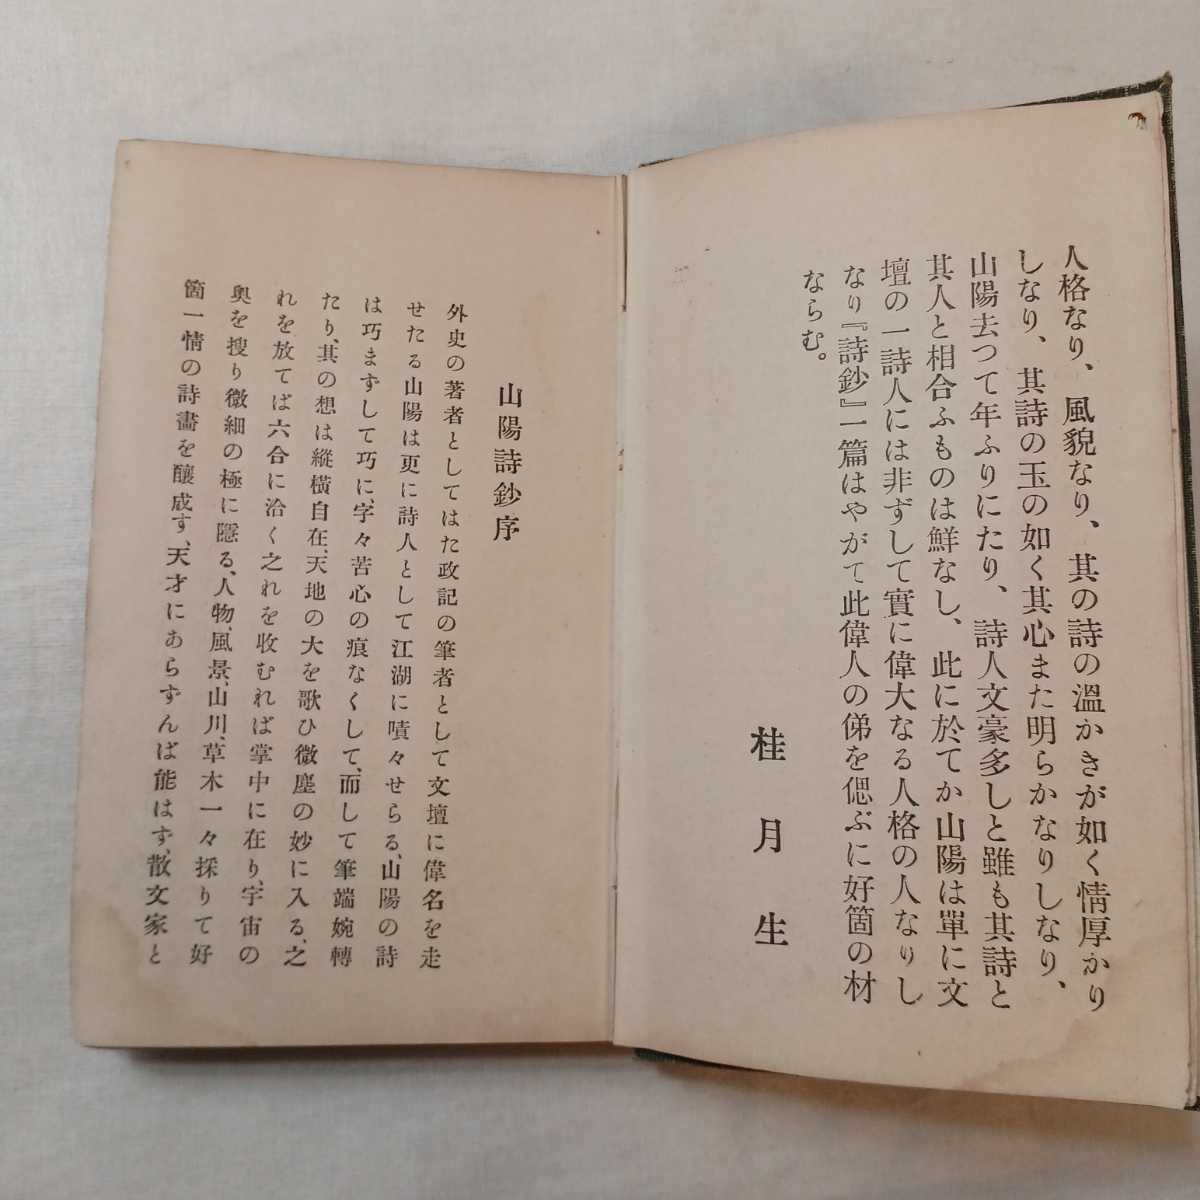 人格なり、風貌なり、其の詩の溫かきが如く情厚かり
しなり、其詩の玉の如く其心また明らかなりしなり、
山陽去つて年ふりにたり、詩人文豪多しと雖も其詩と
其人と相合ふものは鮮なし、此に於てか山陽は單に文
壇の一詩人には非ずして實に偉大なる人格の人なりし
なり『詩鈔』一篇はやがて此偉人の俤を偲ぶに好箇の材
ならむ。
桂月生
山陽詩鈔序
外史の著者としてはた政記の筆者として文壇に偉名を走
せたる山陽は更に詩人として江湖に嘖々せらる、山陽の詩
は巧まずして巧に、字々苦心の痕なくして、而して筆端婉轉
たり、其の想は縱橫自在、天地の大を歌ひ微塵の妙に入る、之
れを放てば六合に洽く之れを收むれば掌中に在り、宇宙の
奧を搜り微細の極に隱る、人物、風景、山川、草木一々採りて好
箇一情の詩畫を釀成す、天才にあらずんば能はず、散文家と